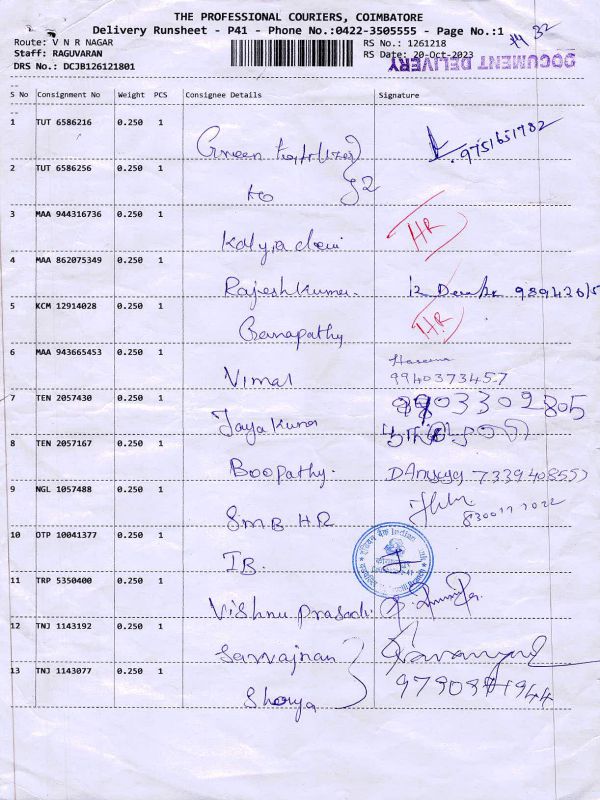 THE PROFESSIONAL COURIERS, COIMBATORE
Delivery Runsheet - P41 - Phone No.:0422-3505555 - Page No.:1
Route: V N R NAGAR
Staff: RAGUVARAN
DRS No.: DCJB126121801
RS No.: 1261218
RS Date: 20-Oct-2023
DOCUMENT DELIVERY
S No Consignment No Weight PCS Consignee Details Signature
1 TUT 6586216 0.250 1
Green 9751651782
2 TUT 6586256 0.250 1
to
3 MAA 944316736 0.250 1
Kalyia devi HR
4 MAA 862075349 0.250 1
Rajeshkumar.
5 KCM 12914028 0.250 1
Ganapathy H.R
6 MAA 943665453 0.250 1
Vimal Haseena
9940373457
7 TEN 2057430 0.250 1
Jayakumar 9903302805
8 TEN 2057167 0.250 1
Boopathy.
9 NGL 1057488 0.250 1
SMB HR
10 DTP 10041377 0.250 1
IB. Indian
11 TRP 5350400 0.250 1
Vishnu Prasath.
12 TNJ 1143192 0.250 1
Sarvajnan
13 TNJ 1143077 0.250 1
Shorya